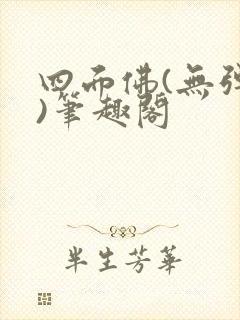 四面佛(無彈
)筆趣閣
半生芳華